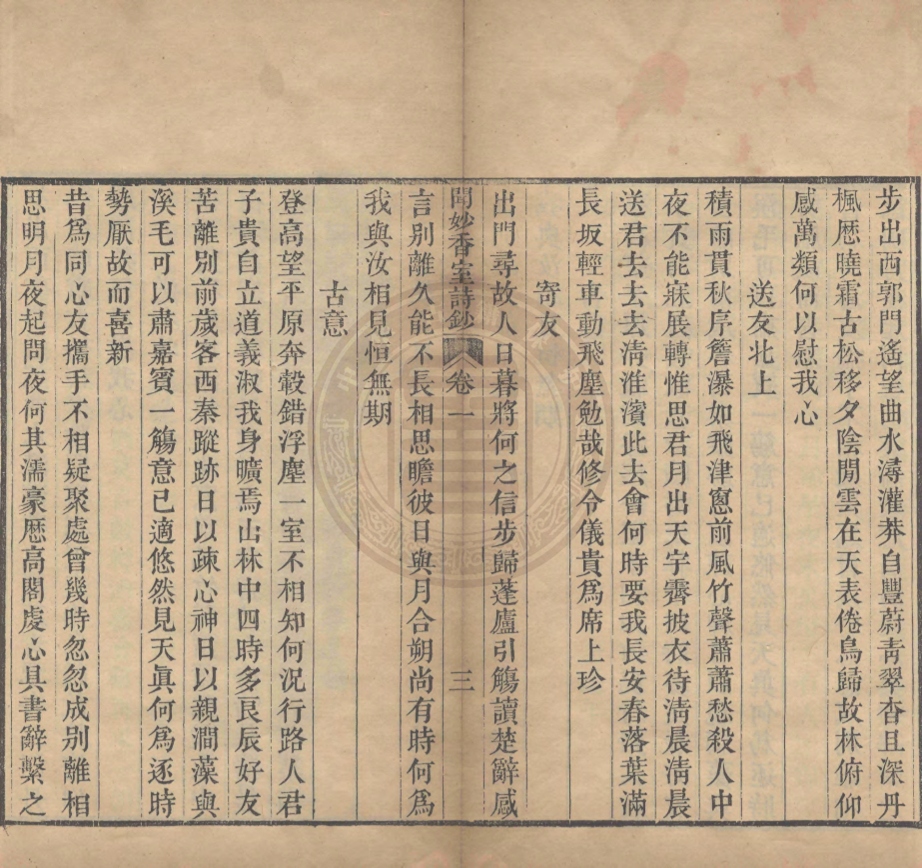 步出西郭門遙望曲水潯灌莽自豐蔚青翠杳且深丹
楓歴曉霜古松移夕陰閒雲在天表倦鳥歸故林俯仰
感萬類何以慰我心
送友北上
積雨貫秋序簷瀑如飛津窻前風竹聲蕭蕭愁殺人中
夜不能寐展轉惟思君月出天宇霽披衣待淸晨淸晨
送君去去去淸淮濱此去會何時要我長安春落葉滿
長坂輕車動飛塵勉哉修令儀貴爲席上珍
寄友
出門尋故人日暮將何之信步歸蓬廬引觴讀楚辭感
聞妙香室詩鈔 卷一 三
言别離久能不長相思瞻彼日與月合朔尚有時何爲
我與汝相見恒無期
古意
登高望平原奔轂錯浮塵一室不相知何況行路人君
子貴自立道義淑我身曠焉山林中四時多良辰好友
苦離别前歲客西秦蹤跡日以疎心神日以親澗藻與
溪毛可以肅嘉賓一觴意已適悠然見天眞何爲逐時
勢厭故而喜新
昔爲同心友攜手不相疑聚處曾幾時忽忽成别離相
思明月夜起問夜何其濡豪歴高閣虔心具書辭繫之